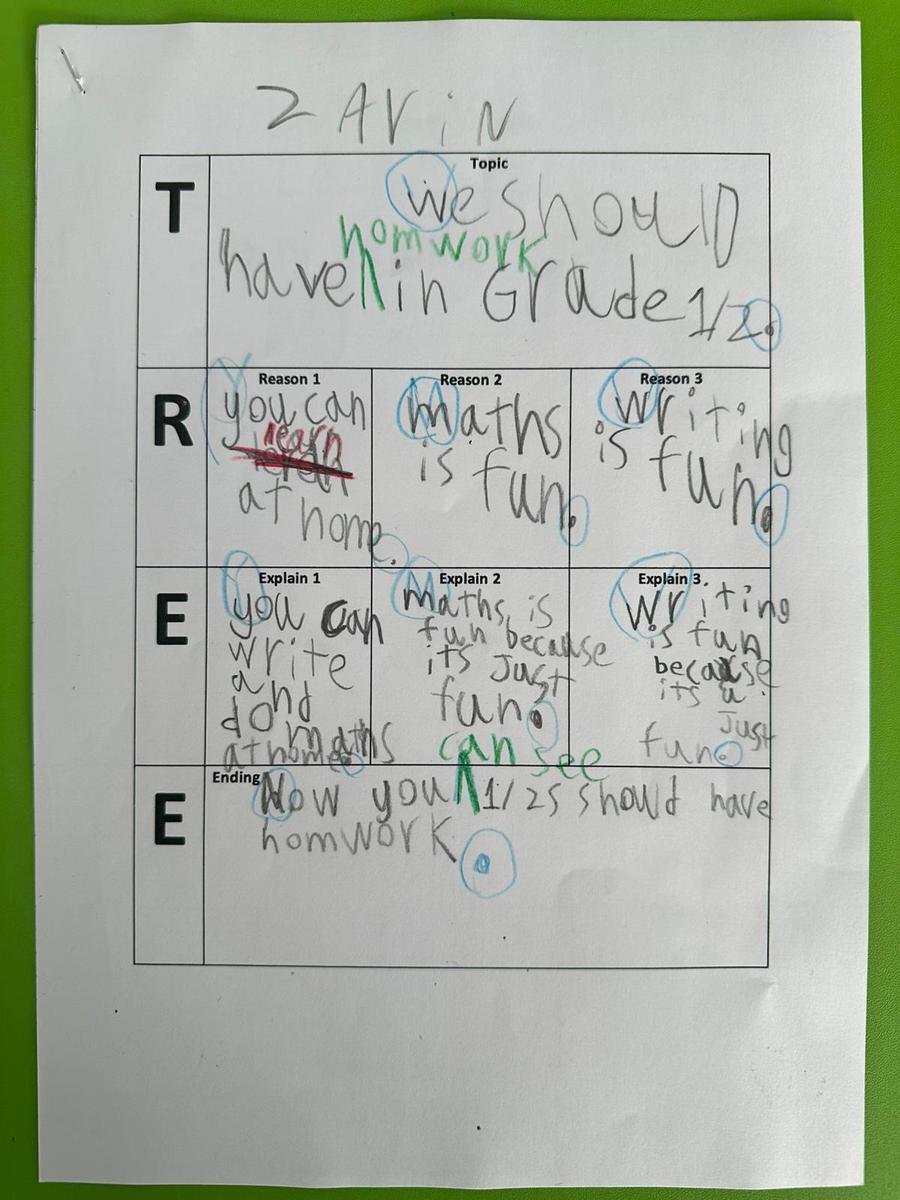 ZAriN
T
Topic
We should
homwork
have in Grade 1/2.
R
Reason 1
You can
learn
at home.
Reason 2
Maths
is fun.
Reason 3
Writing
is fun.
E
Explain 1
You can
write
and
do maths
at home.
Explain 2
Maths is
fun because
its Just
fun.
Explain 3
Writing
is fun
because
its
Just
fun.
E
Ending
can see
Now you 1/2s should have
homwork.